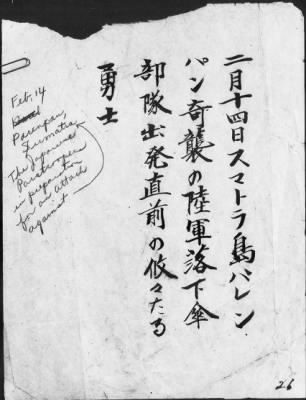 二月十四日スマトラ島パレン
バン奇襲の陸軍落下傘
部隊出発直前の悠々たる
勇士
Feb. 14
Parenpan,
Sumatra
The Japanese
Paratroopers
in preparation
for an attack
against
26